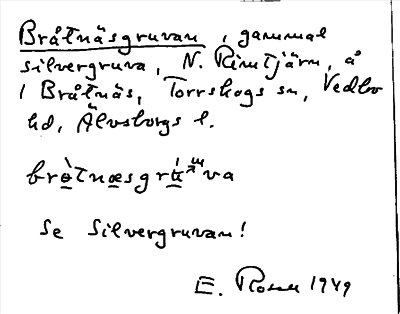 Bråtnäsgruvan, gammal
silvergruva, N. Rimtjärn, å
1 Bråtnäs, Torrskogs sn, Vedbo
hd, Älvsborgs l.
se Silvergruvan!
E. 1949